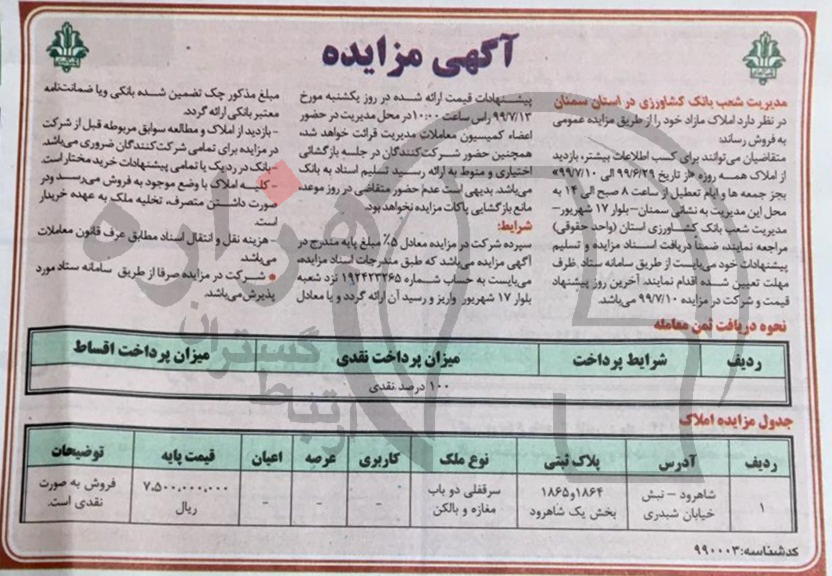 آگهی مزایده
مدیریت شعب بانک کشاورزی در استان سمنان
در نظر دارد املاک مازاد خود را از طریق مزایده عمومی
به فروش رساند:
متقاضیان می‌توانند برای کسب اطلاعات بیشتر، بازدید
از املاک همه روزه «از تاریخ ۹۹/۶/۲۹ الی ۹۹/۷/۱۰»
بجز جمعه ها و ایام تعطیل از ساعت ۸ صبح الی ۱۴ به
محل این مدیریت به نشانی سمنان – بلوار ۱۷ شهریور –
مدیریت شعب بانک کشاورزی استان (واحد حقوقی)
مراجعه نمایند، ضمناً دریافت اسناد مزایده و تسلیم
پیشنهادات خود می‌بایست از طریق سامانه ستاد، ظرف
مهلت تعیین شده اقدام نمایند. آخرین روز پیشنهاد
قیمت و شرکت در مزایده ۹۹/۷/۱۰ می‌باشد.
پیشنهادات قیمت ارائه شده در روز یکشنبه مورخ
۹۹/۷/۱۳ راس ساعت ۱۰:۰۰ در محل مدیریت در حضور
اعضاء کمیسیون معاملات مدیریت قرائت خواهد شد،
همچنین حضور شرکت‌کنندگان در جلسه بازگشائی
اختیاری و منوط به ارائه رسید تسلیم اسناد به بانک
می‌باشد. بدیهی است عدم حضور متقاضی در روز موعد،
مانع بازگشایی پاکات مزایده نخواهد بود.
شرایط:
سپرده شرکت در مزایده معادل ۵٪ مبلغ پایه مندرج در
آگهی مزایده می‌باشد که طبق مندرجات اسناد مزایده،
می‌بایست به حساب شماره ۱۹۲۴۲۳۲۶۵ نزد شعبه
بلوار ۱۷ شهریور واریز و رسید آن ارائه گردد و یا معادل
مبلغ مذکور چک تضمین شده بانکی ویا ضمانت‌نامه
معتبر بانکی ارائه گردد.
– بازدید از املاک و مطالعه سوابق مربوطه قبل از شرکت
در مزایده برای تمامی شرکت‌کنندگان ضروری می‌باشد.
– بانک در رد یک یا تمامی پیشنهادات خرید مختار است.
– کلیه املاک با وضع موجود به فروش می‌رسد ودر
صورت داشتن متصرف، تخلیه ملک به عهده خریدار
است.
– هزینه نقل و انتقال اسناد مطابق عرف قانون معاملات
می‌باشد.
● شرکت در مزایده صرفا از طریق سامانه ستاد مورد
پذیرش می‌باشد.
نحوه دریافت ثمن معامله
ردیف شرایط پرداخت میزان پرداخت نقدی میزان پرداخت اقساط
۱۰۰ درصد نقدی
جدول مزایده املاک
ردیف آدرس پلاک ثبتی نوع ملک کاربری عرصه اعیان قیمت پایه توضیحات
۱ شاهرود – نبش خیابان شبدری ۱۸۶۴و۱۸۶۵ بخش یک شاهرود سرقفلی دو باب مغازه و بالکن – – – ۷،۵۰۰،۰۰۰،۰۰۰ ریال فروش به صورت نقدی است.
کدشناسه: ۹۹۰۰۰۳
هزاره
گستران
ارتباط